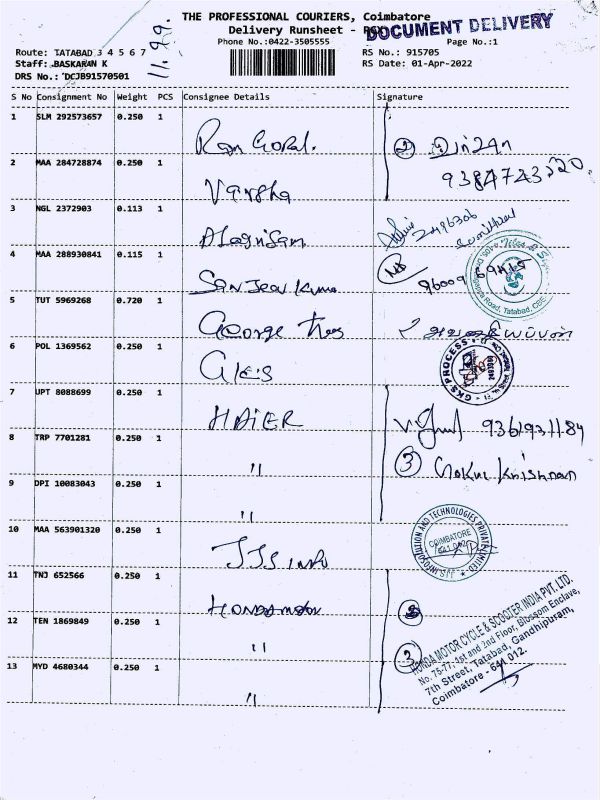 THE PROFESSIONAL COURIERS, Coimbatore
Delivery Runsheet -
DOCUMENT DELIVERY
Phone No.:0422-3505555
Page No.:1
Route: TATABAD 3 4 5 6 7
RS No.: 915705
Staff: BASKARAN K
RS Date: 01-Apr-2022
DRS No.: DCJB91570501
S No Consignment No Weight PCS Consignee Details Signature
1 SLM 292573657 0.250 1 Ram Gopal.
2 MAA 284728874 0.250 1 Varsha
9384743220
3 NGL 2372903 0.113 1
4 MAA 288930841 0.115 1 Sanjeev Kumar
96009 69415
Tatabad, CBE
5 TUT 5969268 0.720 1 George
6 POL 1369562 0.250 1
GKS PROCESS
7 UPT 8088699 0.250 1 HAIER
8 TRP 7701281 0.250 1 "
3 Gokul Krishnan
9 DPI 10083043 0.250 1 "
10 MAA 563901320 0.250 1 JJS info
JJS INFORMATION AND TECHNOLOGIES PRIVATE LIMITED
COIMBATORE
11 TNJ 652566 0.250 1 Honda motor
12 TEN 1869849 0.250 1 "
3
13 MYD 4680344 0.250 1 "
HONDA MOTOR CYCLE & SCOOTER INDIA PVT. LTD.
No. 75-77, 1st and 2nd Floor, Blossom Enclave,
7th Street, Tatabad, Gandhipuram,
Coimbatore - 641 012.